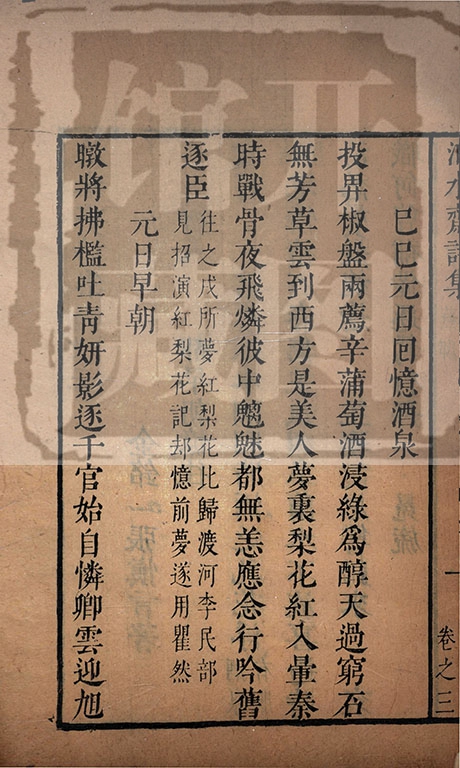 酒水齋詩集
卷之三
一
己巳元日回憶酒泉
投畀椒盤兩薦辛蒲萄酒浸綠爲醇天過窮石
無芳草雲到西方是美人夢裏梨花紅入暈秦
時戰骨夜飛燐彼中魑魅都無恙應念行吟舊
逐臣
往之戍所夢紅梨花比歸渡河李民部
見招演紅梨花記却憶前夢遂用瞿然
元日早朝
暾將拂檻吐青妍影逐千官始自憐卿雲迎旭